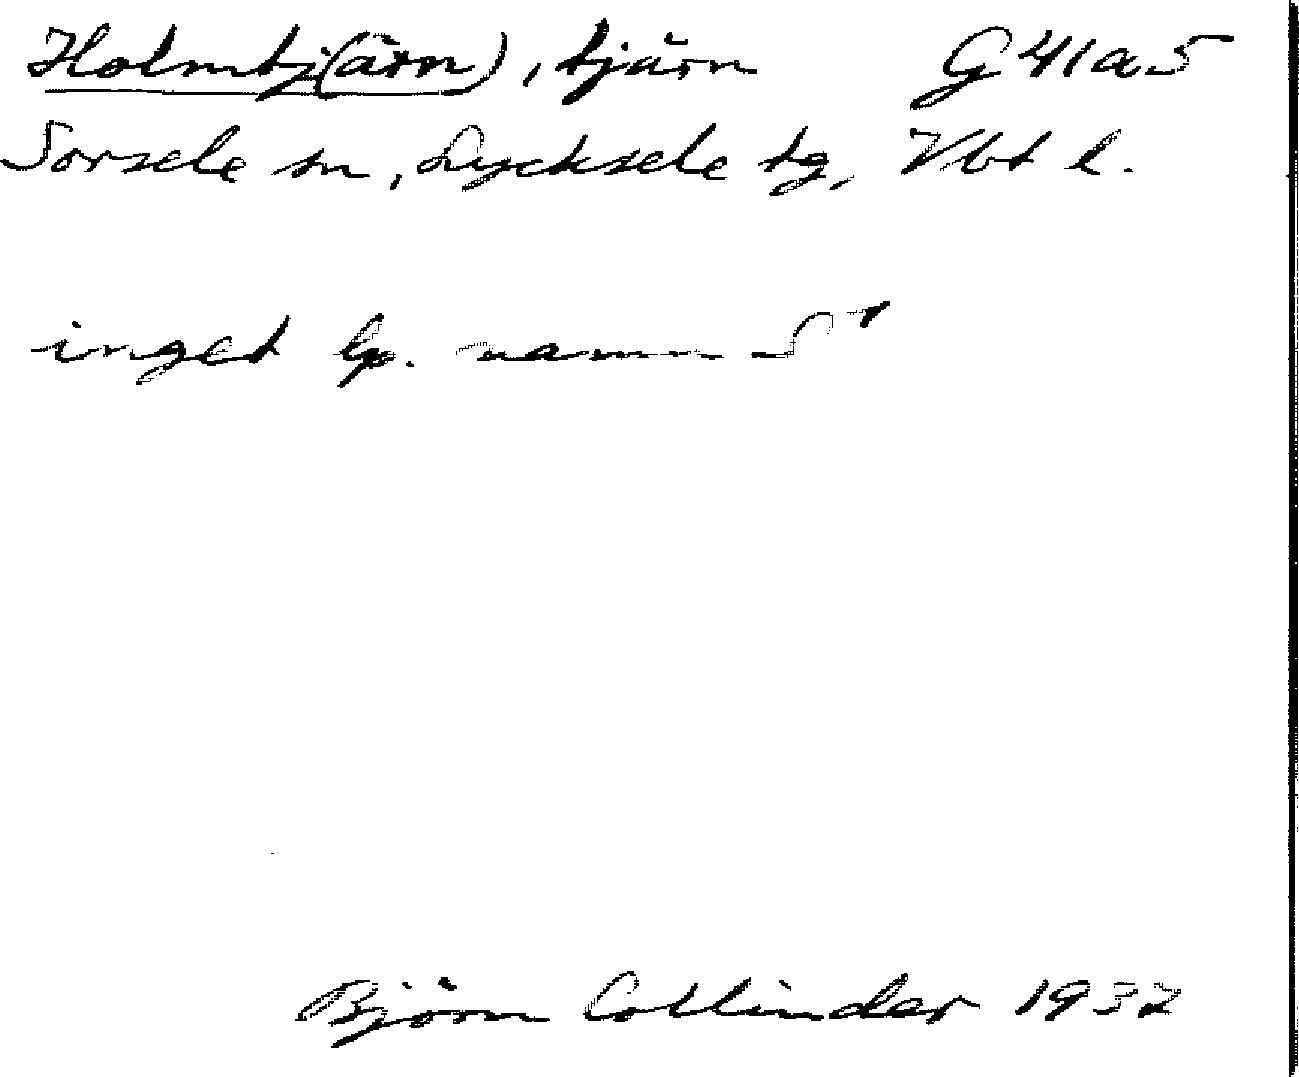 Holmtj(ärn), tjärn G41a5
Sorsele sn, Lycksele tg, Vbt l.
inget lp. namn
Björn Collinder 1937